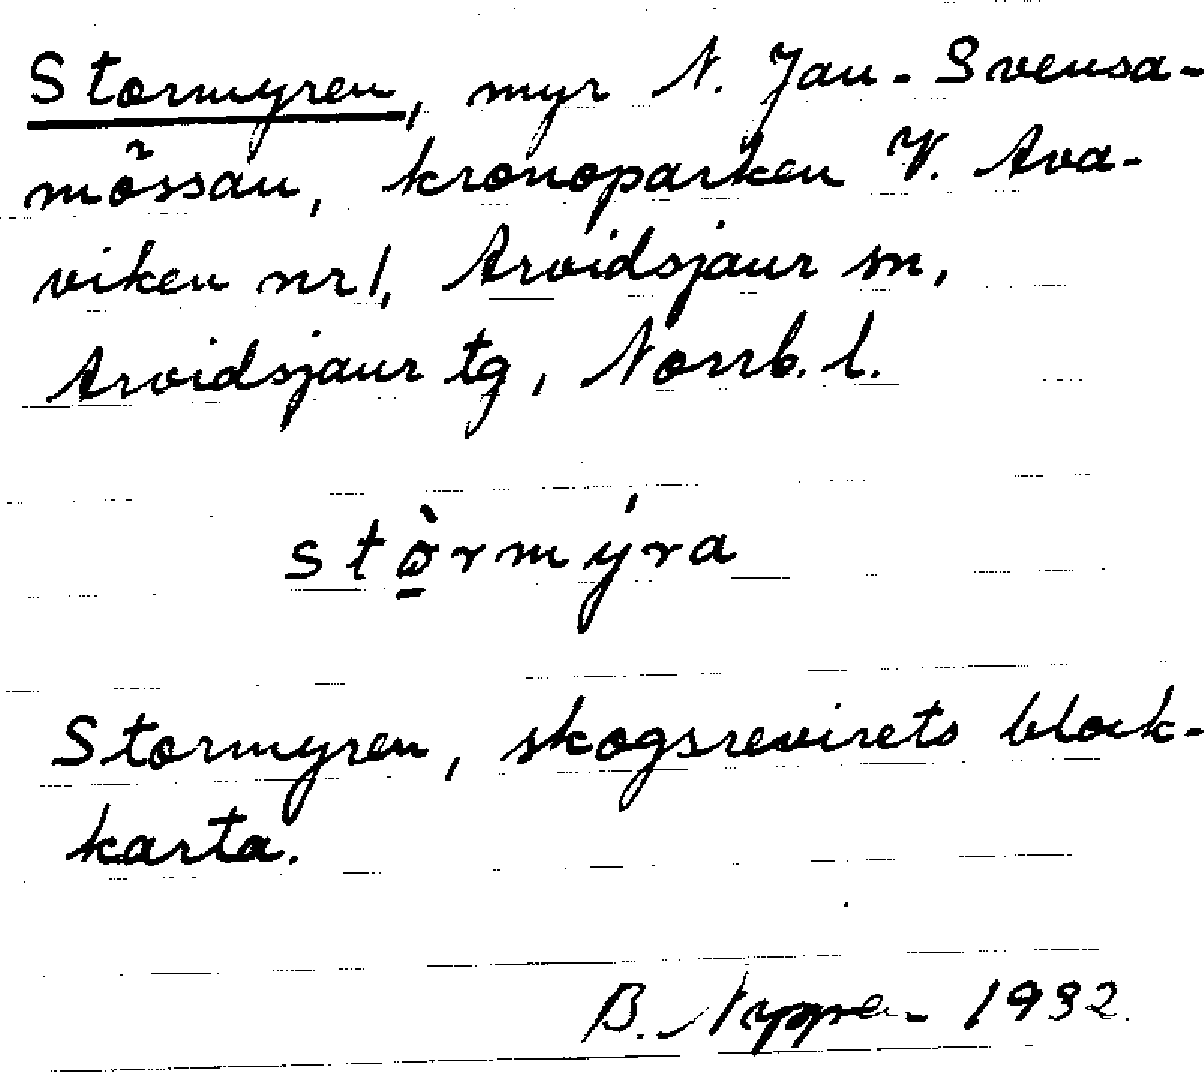 Stormyren, myr N. Jan-Svensa-
mössan, kronoparken V. Ava-
viken nr 1, Arvidsjaur sn,
Arvidsjaur tg, Norrb. l.
stò̱rmýra
Stormyren, skogsrevirets block-
karta.
B. 1932.